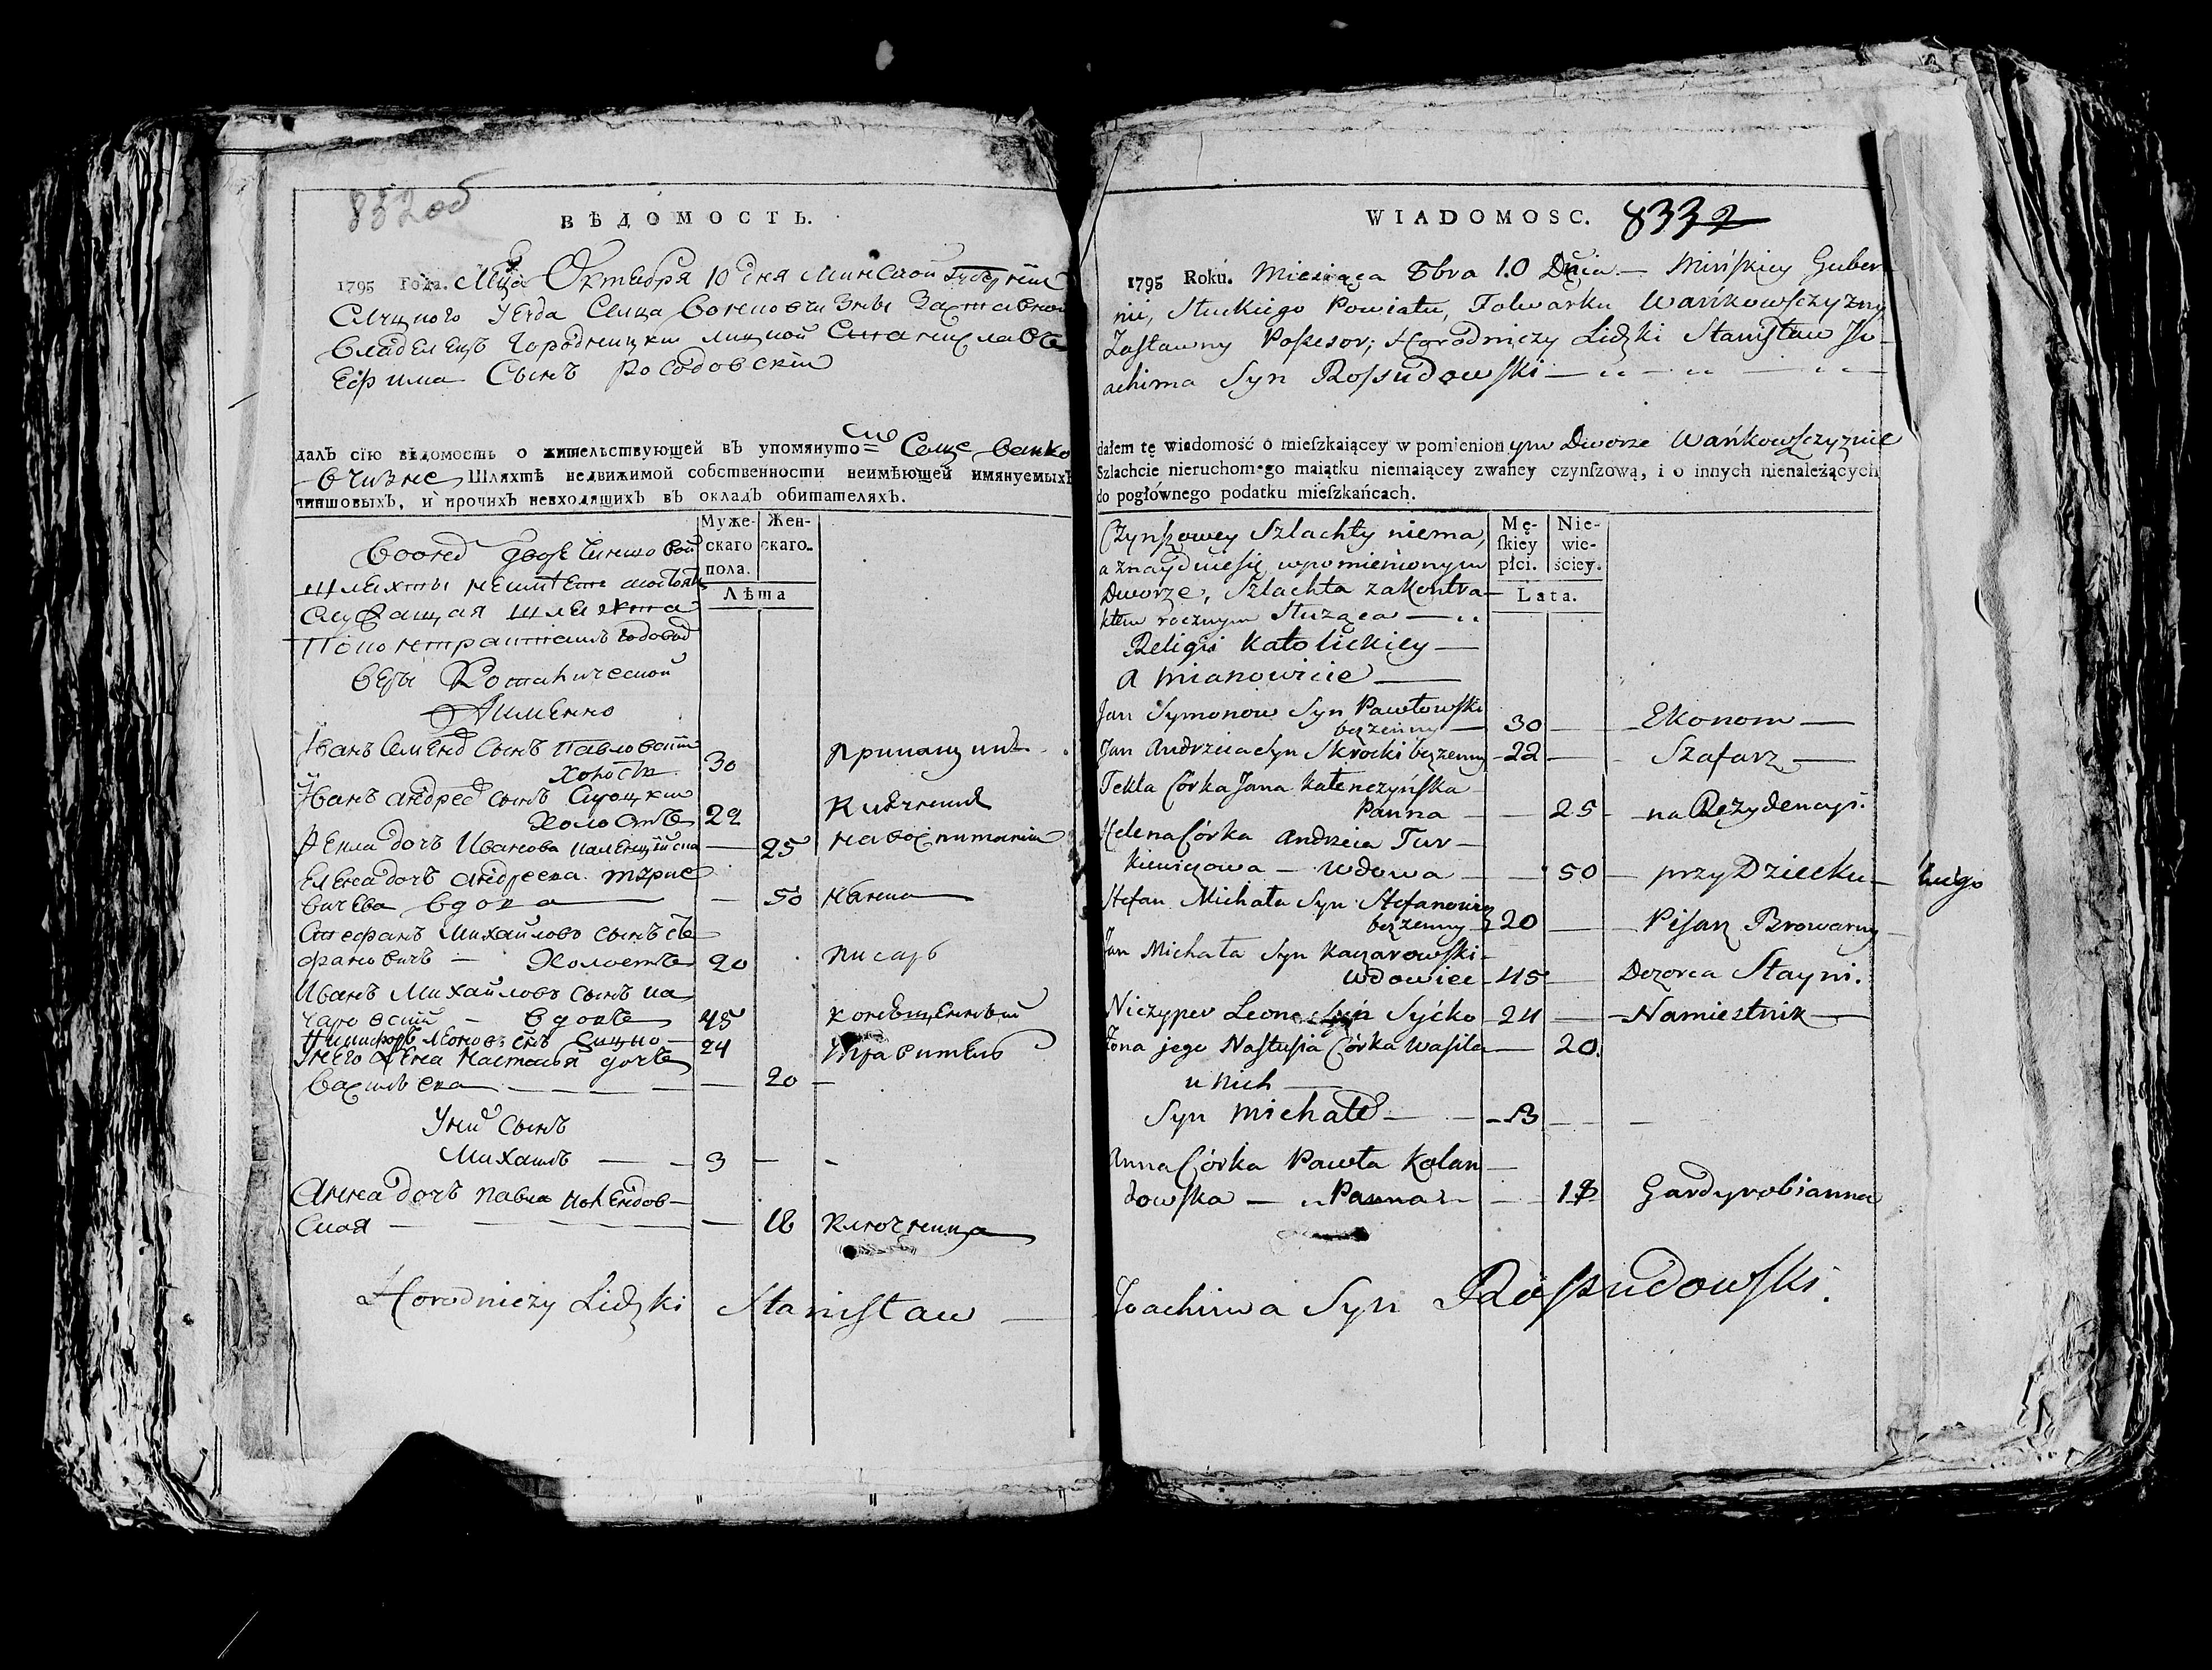 832об
ВѢДОМОСТЬ.
1795 Года. Мца Октября 10 дня Минской Губерніи
Слуцкого уезда Селца Вонковчизны Заставной
Владелецъ Городничи Лицкой Станиславъ
Ефима Сынъ Росодовскіи
далъ сію вѣдомость о жительствующей въ упомянуто= Селце Ванко
вчизне Шляхтѣ недвижимой собственности неимѣющей имянуемыхъ
чиншовыхъ, и прочихъ невходящихъ въ окладъ обитателяхъ.
Муже- Жен-
скаго скаго.
пола.
Лѣта
дворе чиншовой
шляхты
Служащая шляхта
веры Католической
Аимянно
Иванъ Семено Сынъ Павловски
Холостъ 30
Иванъ Андрео сынъ Скроцки
Холостъ 22
Текла дочъ Иванова Каленчинска — 25 на воспитании
Елена дочъ Андреева Турке
вичева вдова — 50 нянка
Стефанъ Михайловъ сынъ Сте
фановичъ — Холостъ 20 писарь
Иванъ Михайловъ сынъ Ка
чаровски — вдовъ 45
Ничипоръ Леоновъ снъ Сицко — 24 правитель
Унего жена Настасья дочь
васильева — 20 —
Уних сынъ
Михаилъ — 3 — -
Анна дочъ Павла Колендов-
ская — — 18 ключница
Horodniczy Lidzki Stanisław —
WIADOMOSC. 8332
1795 Roku. Miesiąca 8bra 10 Dnia — Mińskiey Guber
nii, Słuckiego Powiatu, Folwarku Wańkowszczyzny
Zastawny Possesor; Horodniczy Lidzki Stanisław Jo-
achima Syn Rossudowski —
dałem tę wiadomość o mieſzkaiącey w pomienionym Dworze Wańkowszczyznie
Szlachcie nieruchomego maiątku niemaiącey zwaney czynſzową, i o innych nienależących
do pogłównego podatku mieſzkańcach.
Mę- Nie-
ſkiey wie-
płci. ściey.
Lata.
Czynszowey Szlachty niema,
a znayduie się w pomienionym
Dworze, Szlachta za kontra-
ktem rocznym Służąca —
Religii Katolickiey —
a mianowicie —
Jan Symonow Syn Pawłowski
bezżenny — 30 — Ekonom —
Jan Andrzeia Syn Skrocki bezżenny — 22 — Szafarz —
Tekla Córka Jana Kalenczyńska
Panna — — 25 — na Rezydencyi.
Helena Córka Andrzeia Tur-
kiewiczowa — Wdowa — — 50 — przy Dziecku —
Stefan Michała Syn Stefanowicz
bezżenny 20 — Pisarz Browarny —
Jan Michała Syn Kaczarowski -
Wdowiec — 45 — Dozorca Stayni.
Niczyper Leona Syn Syćko — 24 — Namiestnik —
Żona jego Nastusia Córka Wasila — 20.
u Nich —
Syn Michał — — 3 — —
Anna Córka Pawła Kolan —
dowska — Panna — — 18 Gardyrobianna
Joachima Syn Rossudowski.